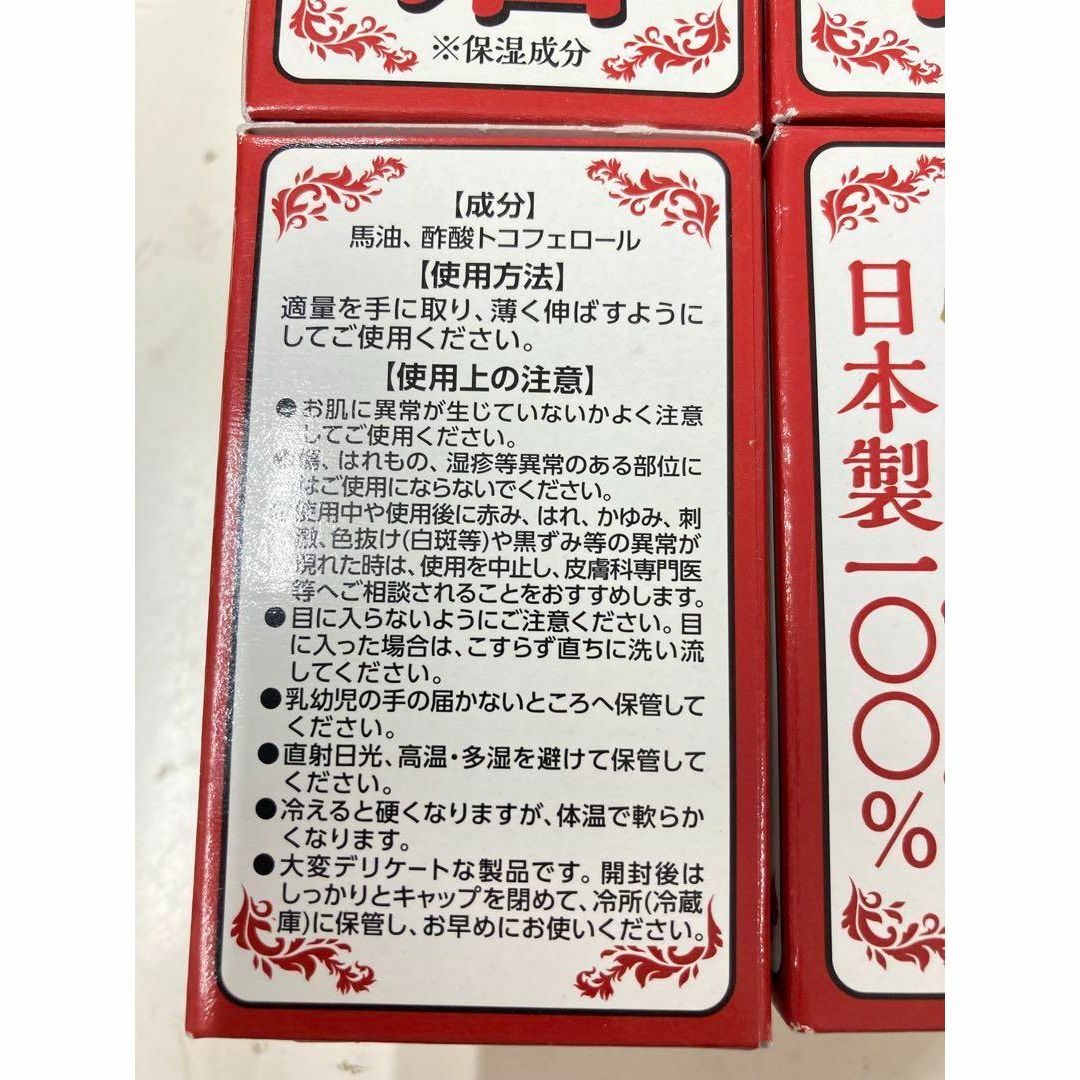 ※保湿成分
【成分】
馬油、酢酸トコフェロール
【使用方法】
適量を手に取り、薄く伸ばすように
してご使用ください。
【使用上の注意】
●お肌に異常が生じていないかよく注意
してご使用ください。
、はれもの、湿疹等異常のある部位に
はご使用にならないでください。
使用中や使用後に赤み、はれ、かゆみ、刺
激、色抜け(白斑等)や黒ずみ等の異常が
現れた時は、使用を中止し、皮膚科専門医
等へご相談されることをおすすめします。
●目に入らないようにご注意ください。目
に入った場合は、こすらず直ちに洗い流
してください。
●乳幼児の手の届かないところへ保管して
ください。
●直射日光、高温・多湿を避けて保管して
ください。
●冷えると硬くなりますが、体温で軟らか
くなります。
●大変デリケートな製品です。開封後は
しっかりとキャップを閉めて、冷所(冷蔵
庫)に保管し、お早めにお使いください。
日本製一〇〇%